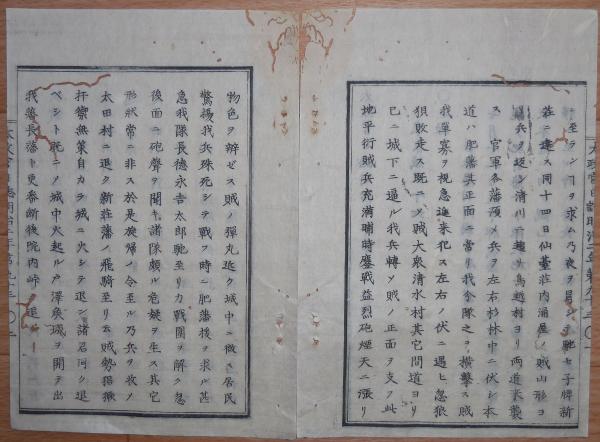 至ランヿヲ求ム乃夜ヲ冒シテ馳セ子牌新
荘ニ達ス同十四日仙臺荘内涌屋ノ賊山形ヨ
兵ヲ返シ清川ニ越リ鳥越村ヨリ両道来襲
ス官軍各藩預メ兵ヲ左右杉林中ニ伏シ本
道ハ肥藩其正面ニ當リ我分隊之ヲ横撃ス賊
我軍寡ヲ視急進来犯ス左右ノ伏ニ遇ヒ忽狼
狽敗走ス既ニメ賊大衆清水村其它間道ヨリ
已ニ城下ニ逼ル我兵轉メ賊ノ正面ヲ支フ此
地平衍賊兵充満晡時鏖戦益烈砲煙天ニ漲リ
物色ヲ辨ゼス賊ノ彈丸迸ク城中ニ徹ス居民
驚擾我兵殊死シテ戦フ時ニ肥藩援ヲ求ル甚
急我隊長徳永吉太郎馳至リカ戦圍ヲ解ク忽
後面ニ砲聲ヲ聞キ諸隊頗ル危疑ヲ生ス其它
形状常ニ非ス於是旋帰ノ令至ル乃兵ヲ收メ
太田村ニ退ク新荘藩ノ飛騎至リ云賊勢猖獗
扞禦無策自カラ城ニ火シテ退ン諸君同ク退
ベシト既ニノ城中火起ル戸澤矦城ヲ開テ出
我薩長藩ト更番断後院内峠ニ退ル